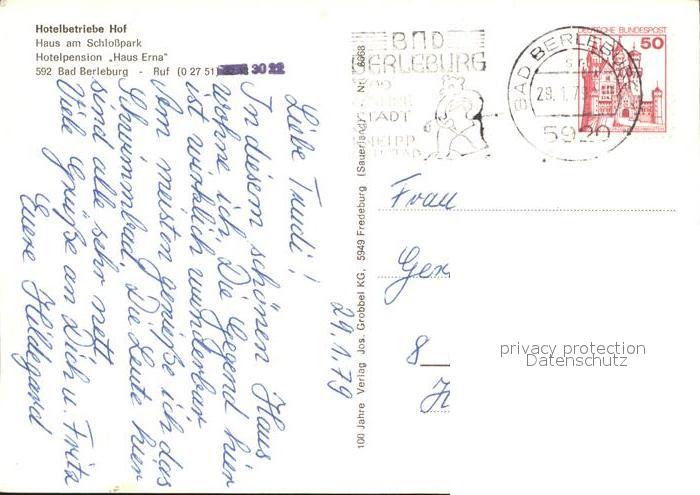 Hotelbetriebe Hof
Haus am Schloßpark
Hotelpension „Haus Erna"
592 Bad Berleburg - Ruf (0 27 51) 30 22
Liebe Trudi!
In diesem schönen Haus
wohne ich. Die Gegend hier
ist wirklich wunderbar
Am meisten genieße ich das
Schwimmbad. Die Leute hier
sind alle sehr nett.
Viele Grüße an Dich u. Fritz
Euere Hildegard
29.1.79
100 Jahre Verlag Jos. Grobbel KG, 5949 Fredeburg (Sauerland) Nr.
BAD
BERLEBURG
STADT
KNEIPP
BAD BERLEBURG
29.1.79
5920
DEUTSCHE BUNDESPOST
50
Frau
8
privacy protection
Datenschutz